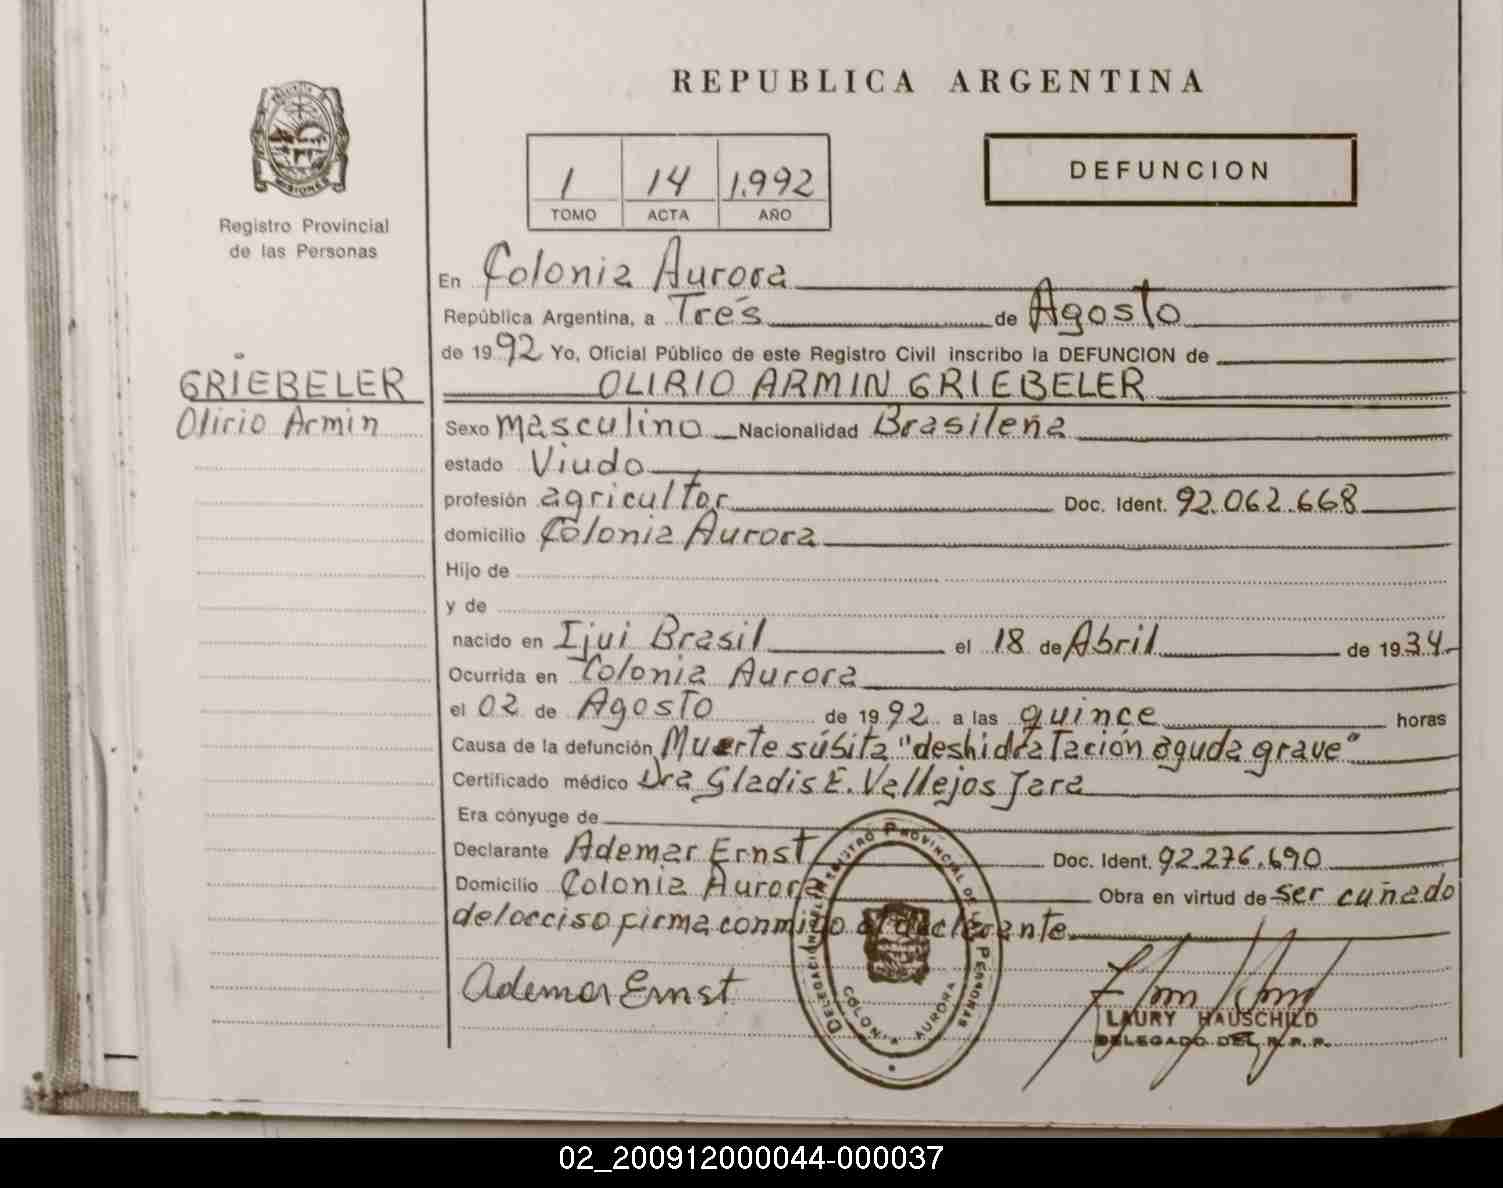 REPUBLICA ARGENTINA
MISIONES
Registro Provincial
de las Personas
1 14 1.992
TOMO ACTA AÑO
DEFUNCION
En Colonia Aurora
República Argentina, a Trés de Agosto
de 1992 Yo, Oficial Público de este Registro Civil inscribo la DEFUNCION de
GRIEBELER
OLIRIO ARMIN GRIEBELER
Olirio Armin
Sexo masculino Nacionalidad Brasileña
estado Viudo
profesión agricultor Doc. Ident. 92.062.668
domicilio Colonia Aurora
Hijo de
y de
nacido en Ijui Brasil el 18 de Abril de 1934
Ocurrida en Colonia Aurora
el 02 de Agosto de 1992 a las quince horas
Causa de la defunción Muerte súbita "deshidratación aguda grave"
Certificado médico Dra Gladis E. Vallejos Jara
Era cónyuge de
Declarante Ademar Ernst Doc. Ident. 92.276.690
Domicilio Colonia Aurora Obra en virtud de ser cuñado
del occiso firma conmigo el declarante
Ademar Ernst
REGISTRO PROVINCIAL DE LAS PERSONAS
DELEGACIÓN
COLONIA AURORA
LAURY HAUSCHILD
DELEGADO DEL R.P.P.
02_200912000044-000037